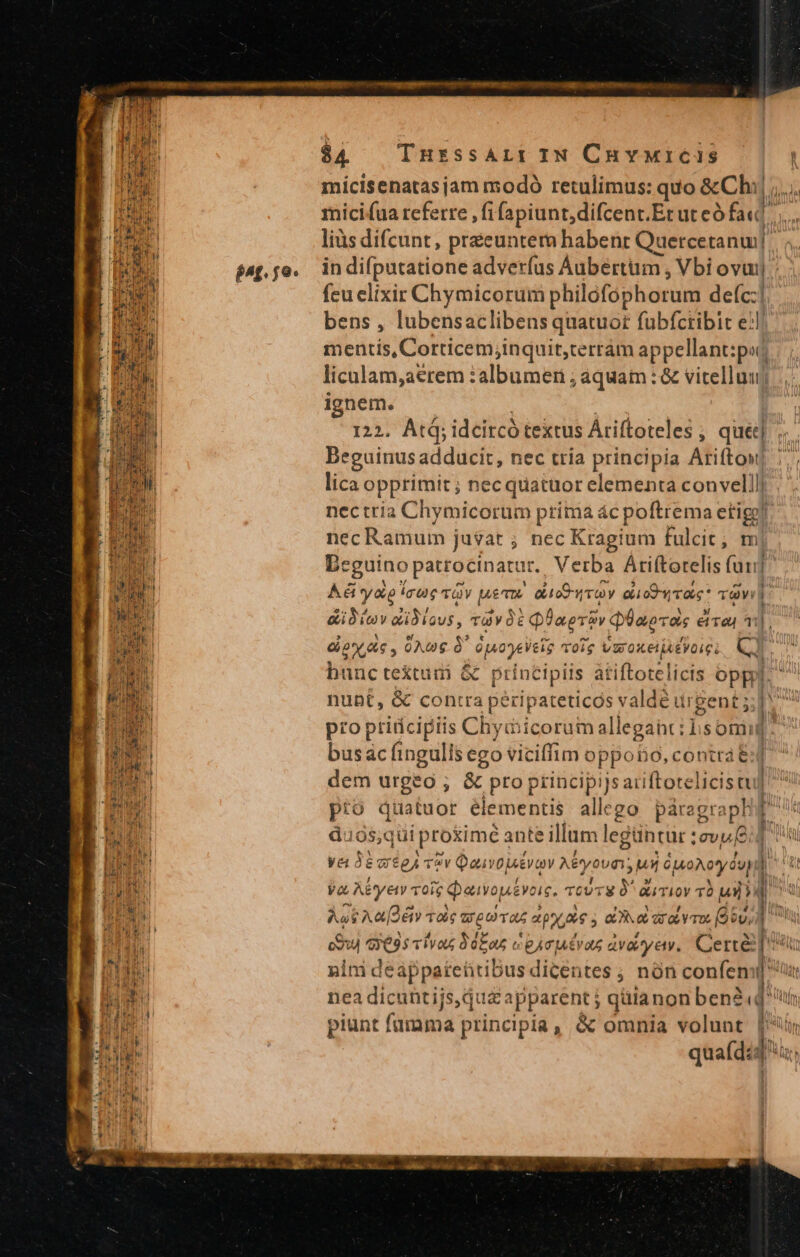 84 THESSALI IN CHYMICIS
micis enatas jam modò retulimus: quo & Chi
mici sua referre, si sapiunt, discent. Et ut eò
liùs discunt, præeuntem habent Quercetanum
pag. 50. in disputatione adversus Aubertum, Vbi ovum
seu elixir Chymicorum philosophorum desc
bens, lubens ac libens quatuor subscribit el
mentis, Corticem, inquit, terram appellant: p
liculam, aërem: albumen, aquam: & vitellum
ignem.
122. Atq; idcircò textus Aristoteles, quem
Beguinus adducit, nec tria principia Aristo
lica opprimit; nec quatuor elementa convell
nec tria Chymicorum prima ac postrema erig
nec Ramum juvat; nec Kragium fulcit, n
Beguino patrocinatur. Verba Aristotelis sun
Δεῖ γὰρ ἴσως τῶν μὲν αἰσθητῶν αἰσθητὰς· τῶν
ἀϊδίων ἀϊδίους, τῶν δὲ φθαρτῶν φθαρτὰς εἶναι τ
ἀρχὰς, ὅλως δ' ὁμογενεῖς τοῖς ὑποκειμένοις. Q
hunc textum & principiis aristotelicis opp
nunt, & contra peripateticos valdè urgent;
pro principiis Chymicorum allegant: is om
bus ac singulis ego vicissim oppono, contra
dem urgeo; & pro principijs aristotelicis tu
pro quatuor elementis allego paragraph
duos, qui proximè ante illum leguntur: συμβ
νει δὲ περὶ τῶν φαινομένων λέγουσι, μὴ ὁμολογούμ
να λέγειν τοῖς φαινομένοις. τούτȣ δ' αἴτιον τὸ μὴ
λῶς λαβεῖν τὰς πρώτας ἀρχὰς, ἀλλὰ πάντα βού
σθαι πρός τινας δόξας ὡρισμένας ἀνάγειν. Certè
nim de apparentibus dicentes; non consen
nea dicunt ijs, quæ apparent; quia non benè
piunt summa principia, & omnia volunt
quasd